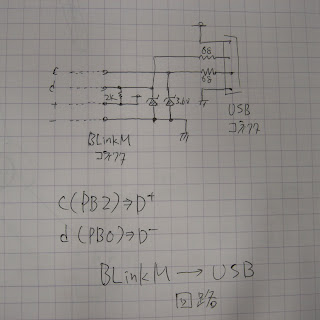 68
c
d
2K
68
+
3.6V
-
USB
コネクタ
BLinkM
コネクタ
c(PB2)→D+
d(PB0)→D-
BLinkM → USB
回路